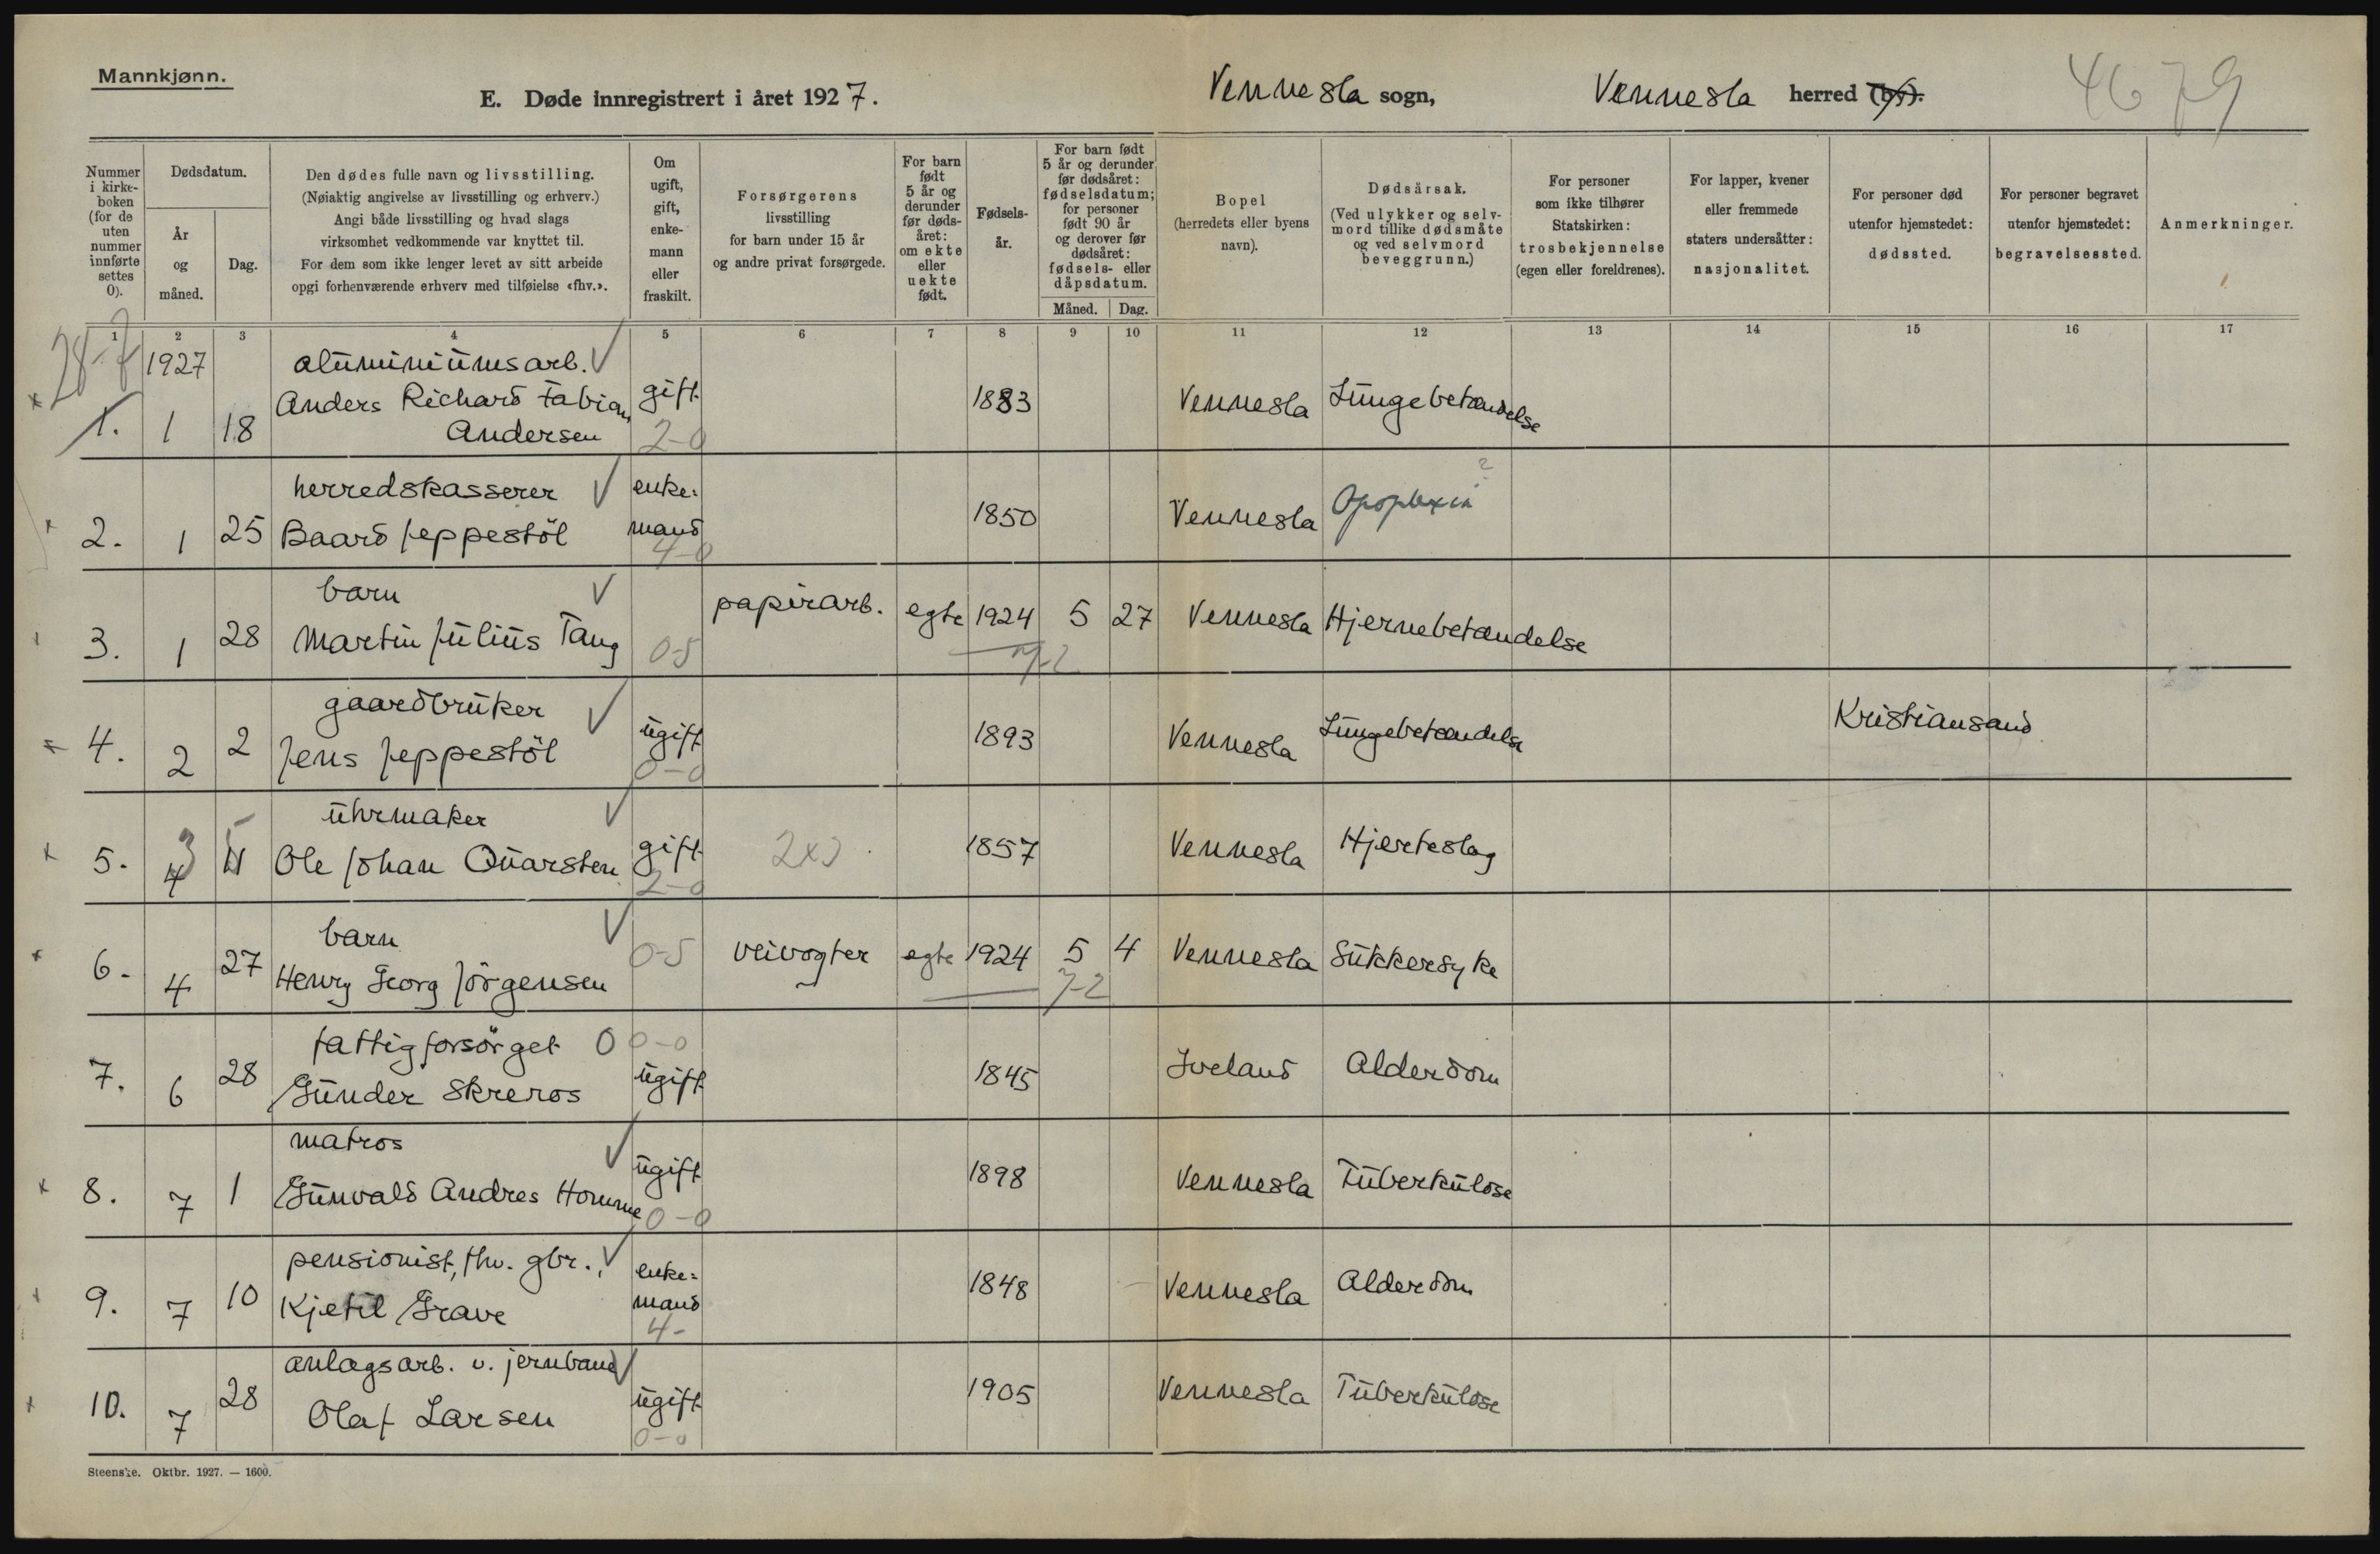 Mannkjønn.
E. Døde innregistrert i året 1927.
Vennesla sogn,
Vennesla herred (by).
4679
Nummer i kirkeboken (for de uten nummer innførte settes 0).
Dødsdatum.
År og måned.
Dag.
Den dødes fulle navn og livsstilling.
(Nøiaktig angivelse av livsstilling og erhverv.)
Angi både livsstilling og hvad slags
virksomhet vedkommende var knyttet til.
For dem som ikke lenger levet av sitt arbeide
opgi forhenværende erhverv med tilføielse «fhv.».
Om ugift, gift, enkemann eller fraskilt.
Forsørgerens
livsstilling
for barn under 15 år
og andre privat forsørgede.
For barn født 5 år og derunder før dødsåret: om ekte eller uekte født.
Fødselsår.
For barn født 5 år og derunder før dødsåret: fødselsdatum; for personer født 90 år og derover før dødsåret: fødsels- eller dåpsdatum.
Måned. Dag.
Bopel
(herredets eller byens
navn).
Dødsårsak.
(Ved ulykker og selv-
mord tillike dødsmåte
og ved selvmord
beveggrunn.)
For personer
som ikke tilhører
Statskirken:
trosbekjennelse
(egen eller foreldrenes).
For lapper, kvener
eller fremmede
staters undersåtter:
nasjonalitet.
For personer død
utenfor hjemstedet:
dødssted.
For personer begravet
utenfor hjemstedet:
begravelsessted.
Anmerkninger.
1 2 3 4 5 6 7 8 9 10 11 12 13 14 15 16 17
1927 aluminiumsarb.
1. 1 18 Anders Richard Fabian Andersen gift 2-0 1883 Vennesla Lungebetændelse
herredskasserer
2. 1 25 Baard Jeppestöl enke=mand 4-0 1850 Vennesla Apoplexia ?
barn
3. 1 28 Martin Julius Tang 0-5 papirarb. egte 1924 5 27 Vennesla Hjernebetændelse
gaardbruker
4. 2 2 Jens Jeppestöl ugift 0-0 1893 Vennesla Lungebetændelse Kristiansand
uhrmaker
5. Ole Johan Quarsten gift 2-0 1857 Vennesla Hjerteslag
barn
6. 4 27 Henry Georg Jörgensen 0-5 veivogter egte 1924 5 4 7-2 Vennesla Sukkersyke
fattigforsörget 0 0-0
7. 6 28 Gunder Skreros ugift 1845 Iveland Alderdom
matros
8. 7 1 Gunvald Andres Homme ugift 0-0 1898 Vennesla Tuberkulose
pensionist, fhv. gbr.
9. 7 10 Kjetil Grave enke=mand 4- 1848 Vennesla Alderdom
anlagsarb. v. jernbane
10. 7 28 Olaf Larsen ugift 0-0 1905 Vennesla Tuberkulose
Steenske. Oktbr. 1927. — 1600.